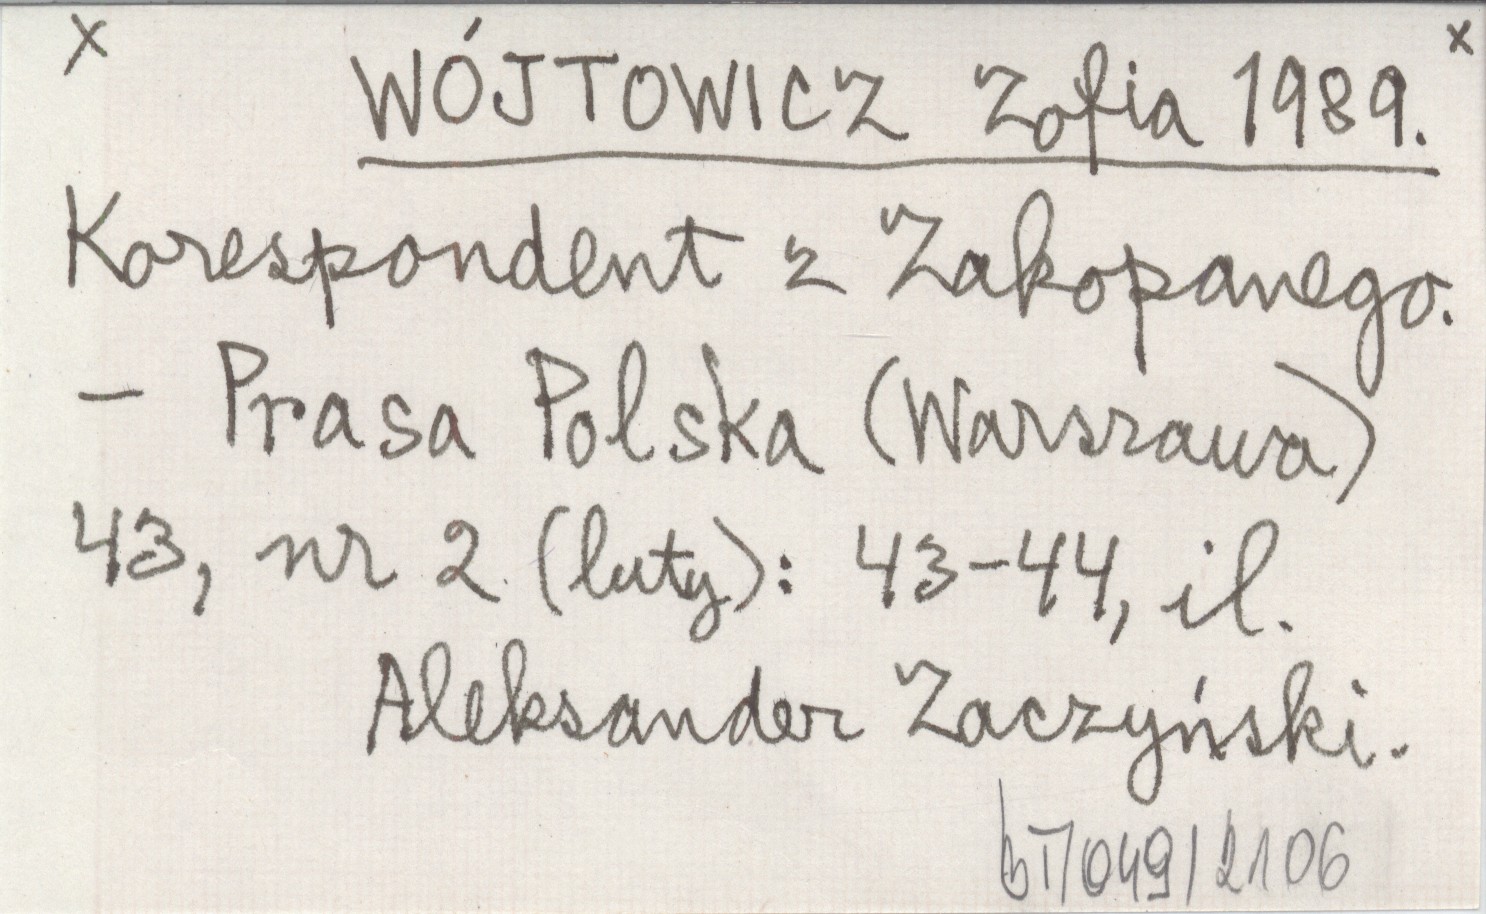 x x
WÓJTOWICZ Zofia 1989.
Korespondent z Zakopanego.
- Prasa Polska (Warszawa)
43, nr 2 (luty): 43-44, il.
Aleksander Zaczyński.
bT/049/2106